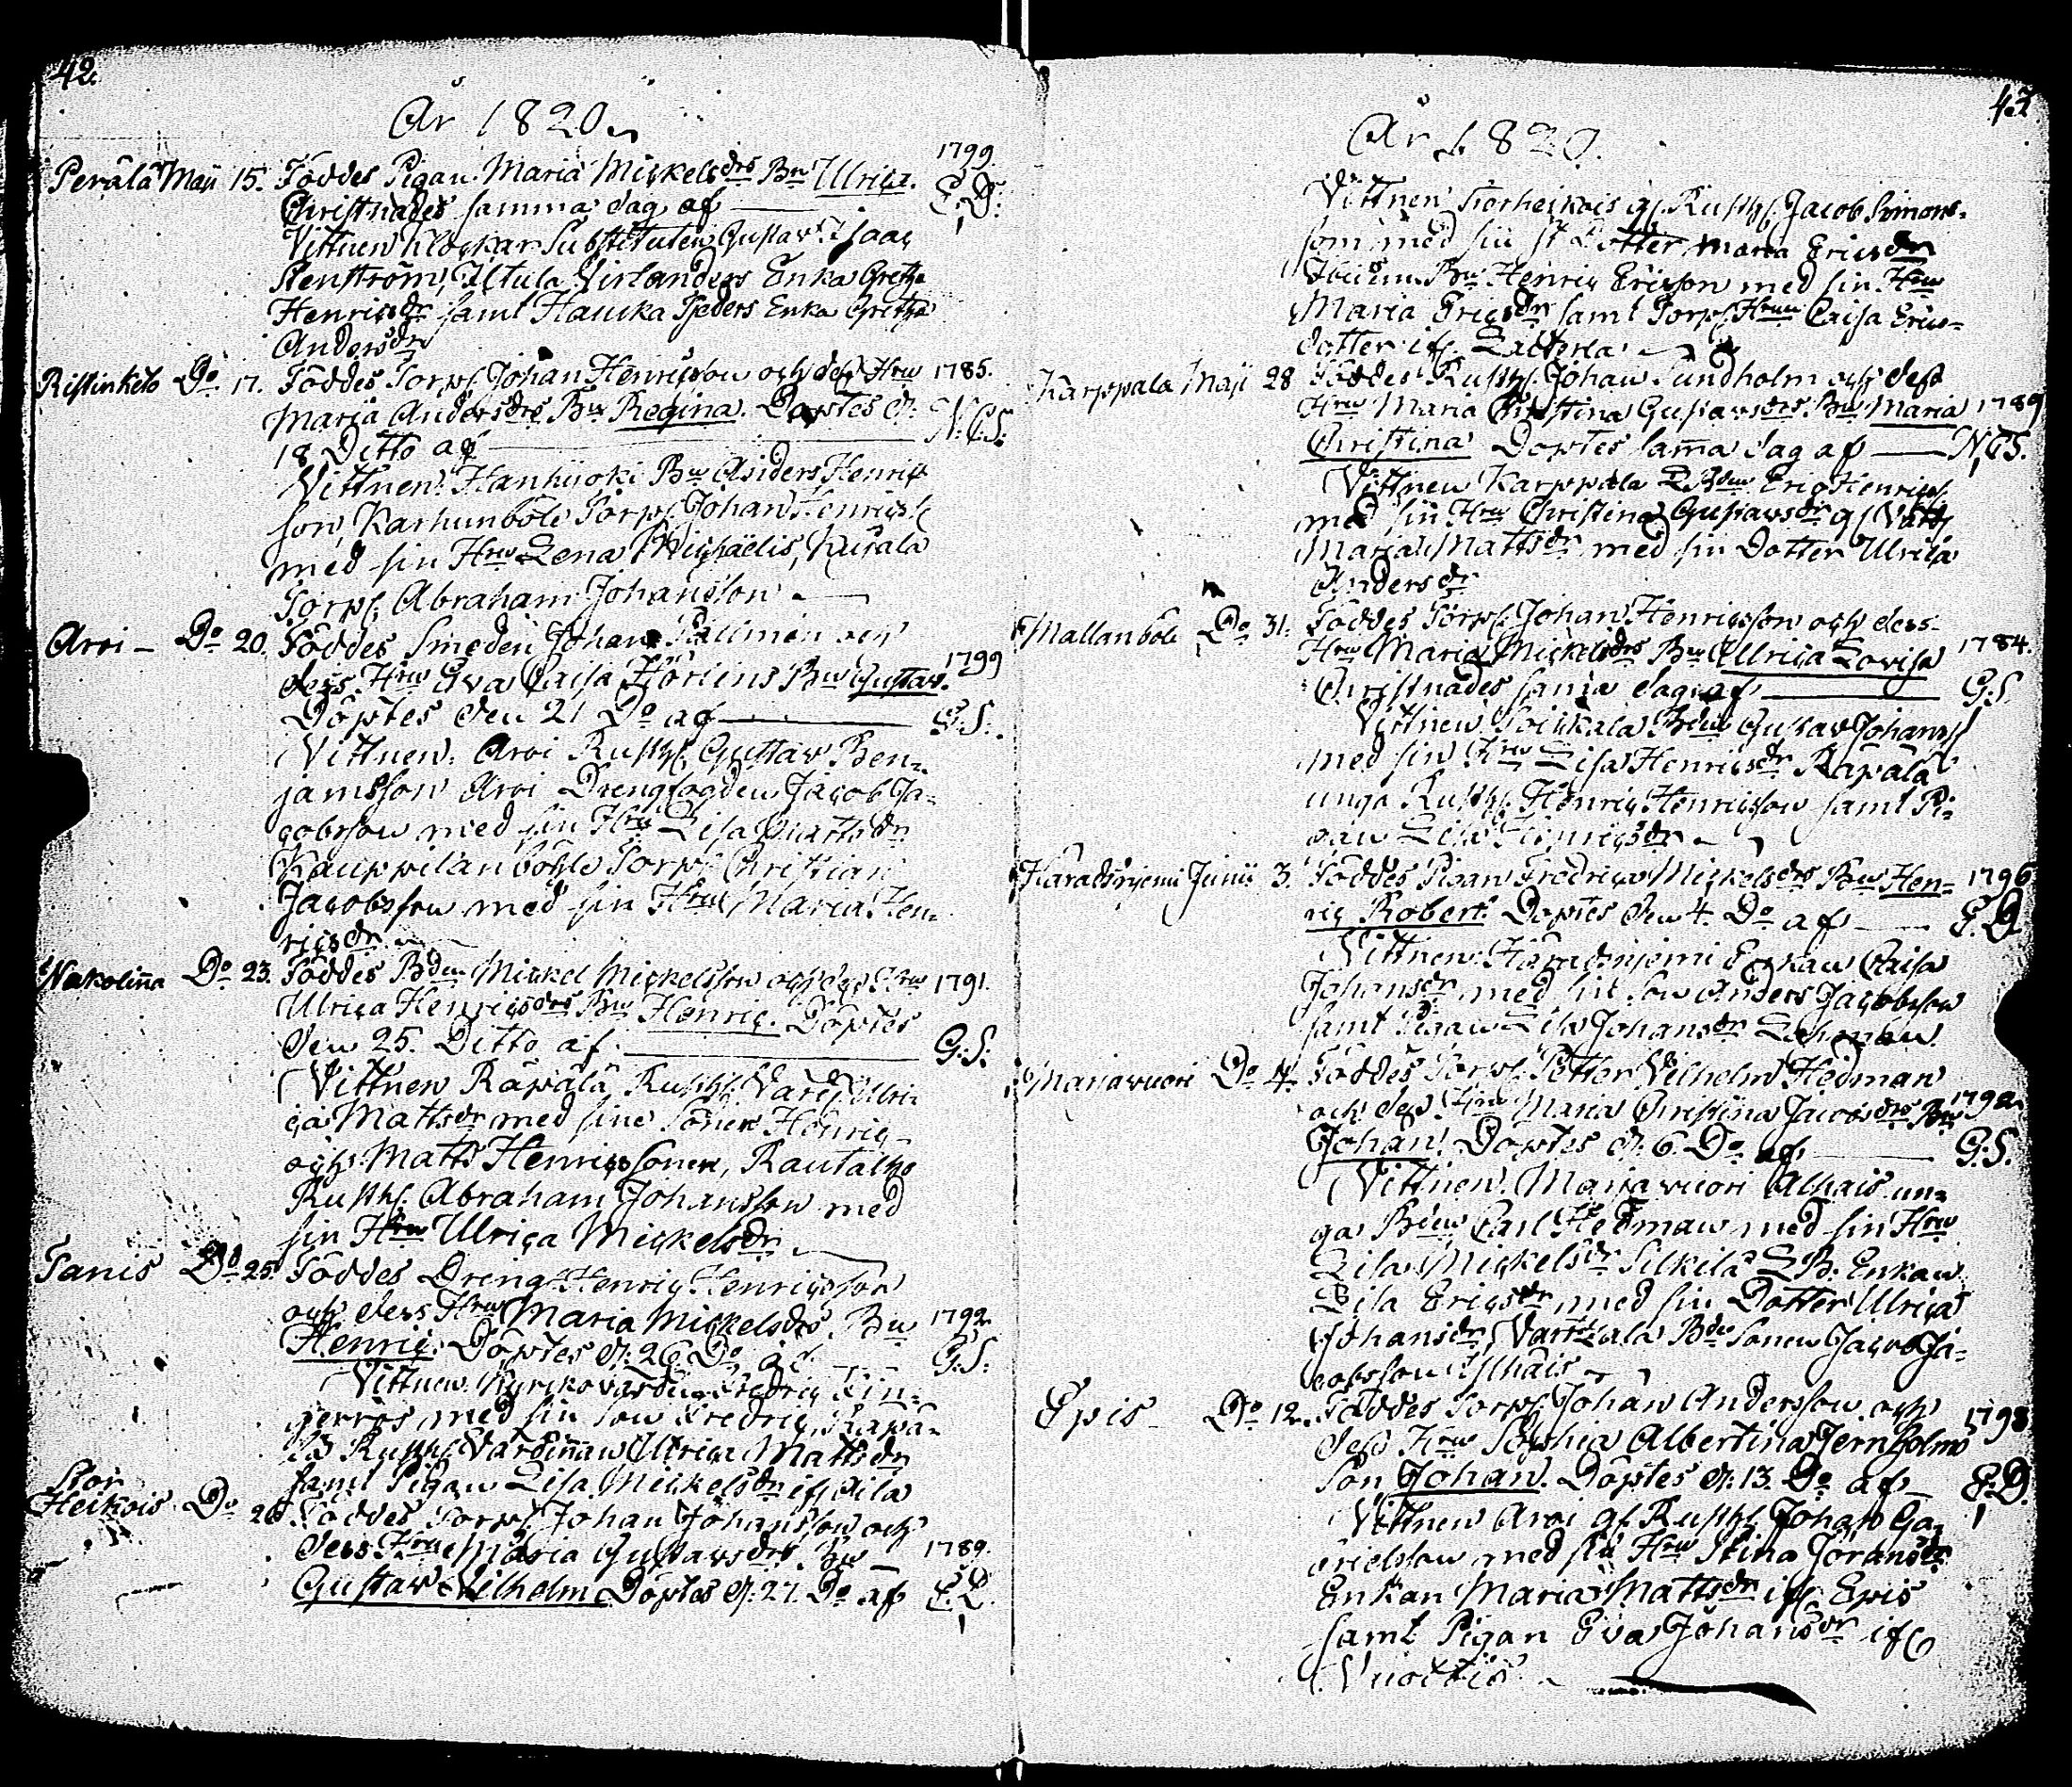 42.
År 1820.
Perälä Maji 15. Föddes Pigan Maria Mickelsdrs Bn Ulrica. 1799.
Christnades samma dag af E.D.
Vittnen Klockar Substituten Gustav Isaac
Stenström, Iltula Virlanders Enka Gretha
Henricsdr samt Haucka Peders Enka Gretha
Andersdr
Ristinketo Do 17. Föddes Torp. Johan Henricsson och dess Hru 1785.
Maria Andersdrs Bn Regina. Döptes d.
18 Ditto af N.C.S.
Vittnen. Hanhijoki Bn Anders Henrics
son, Karhunböle Torp. Johan Henricss
med sin Hru Lena Michaelis, Kusala
Torp. Abraham Johansson
Arvi Do 20. Föddes Smeden Johan Tallman och
dess Hru Eva Caisa Bn Gustav. 1799
Döptes den 21 Do af G.S.
Vittnen. Arvi Rusth. Gustav Ben-
jamsson Arvi Drengfogden Jacob Ja-
cobsson med sin Hru Lisa Mattsdr
Kauppilan böhle Torp. Christian
Jacobsson med sin Hru Maria Hen-
ricsdr
Nakolinna Do 23. Föddes Bden Mickel Mickelsson och dess Hru 1791.
Ulrica Henricsdrs Bn Henric. Döptes
den 25. Ditto af G.S.
Vittnen Räpälä Rusth. Vard. Ulri-
ca Mattsdr med sine Söner Henric
och Matts Henrics Söner, Rautalho
Rusth. Abraham Johansson med
sin Hru Ulrica Mickelsdr
Tanis Do 25. Föddes Dreng Henric Henricsson
och dess Hru Maria Mickelsdrs Bn 1792
Henric. Döptes d. 26 Do af G.S.
Vittnen Kyrkovärden Fredric Fin-
gerroos med sin son Fredric, Räpä-
lä Rusth. Värdinnan Ulrica Mattsdr
samt Pigan Lisa Mickelsdr if. Aila
Stor
Heikois Do 26 Föddes Torp. Johan Johansson och
dess Hru Maria Gustavsdrs Bn 1789.
Gustav Vilhelm Döptes d. 27. Do af E.D.
43
År 1820.
Vittnen Storheikois gl. Rusth. Jacob Simons-
son med sin St Dotter Maria Ericsdr
Bn Henric Ericson med sin Hru
Maria Ericsdr samt Torp. Hrun Caisa Erics-
dotter if.
Karppala Maji 28 Föddes Rusth. Johan Sundholm och dess
Hru Maria Christina Gustavsdrs Bn Maria 1789
Christina Döptes samma dag af N.C.S.
Vittnen Karppala Eric Henrics
med sin Hru Christina Gustavsdr gl.
Maria Mattsdr med sin Dotter Ulrica
Andersdr
Mallanböle Do 31. Föddes Torp. Johan Henricsson och dess
Hru Maria Mickelsdrs Bn Ulrica Lovisa 1784.
Christnades samma dag af G.S.
Vittnen Soinkala Bden Gustav Johanss
med sin Hru Lisa Henricsdr Räpälä
unga Rusth. Henric Henricsson samt Pi-
gan Lisa Henricsdr
Haradsnjemi Junii 3. Föddes Pigan Fredrica Mickelsdrs Bn Hen- 1796
ric Robert. Döptes den 4. Do af E.D
Vittnen. Haradsnjemi Enkan Caisa
Johansdr med sin son Anders Jacobsson
samt Pigan Lisa Johansdr
Marjavuori Do 4. Föddes Torp. Petter Vilhelm Hedman
och dess Hru Maria Christina Jacobsdrs Bn 1792
Johan. Döptes d. 6. Do af G.S.
Vittnen. Marjavuori Alhais un-
ga Bden Carl Hedman med sin Hru
Lisa Mickelsdr Silkilä L.B. Enkan
Lisa Ericsdr med sin Dotter Ulrica
Johansdr, Varttala Bde Sonen Jacob Ja-
cobsson Ylhäis
Epis Do 12. Föddes Torp. Johan Andersson och
dess Hru Sophia Albertina Jernholms 1798
Son Johan. Döptes d. 13. Do af E.D.
Vittnen Arvi gl. Rusth. Johan Ga-
brielsson med sin Hru Stina Jöransdr
Enkan Maria Mattsdr if. Epis
samt Pigan Eva Johansdr if.
Vuottis